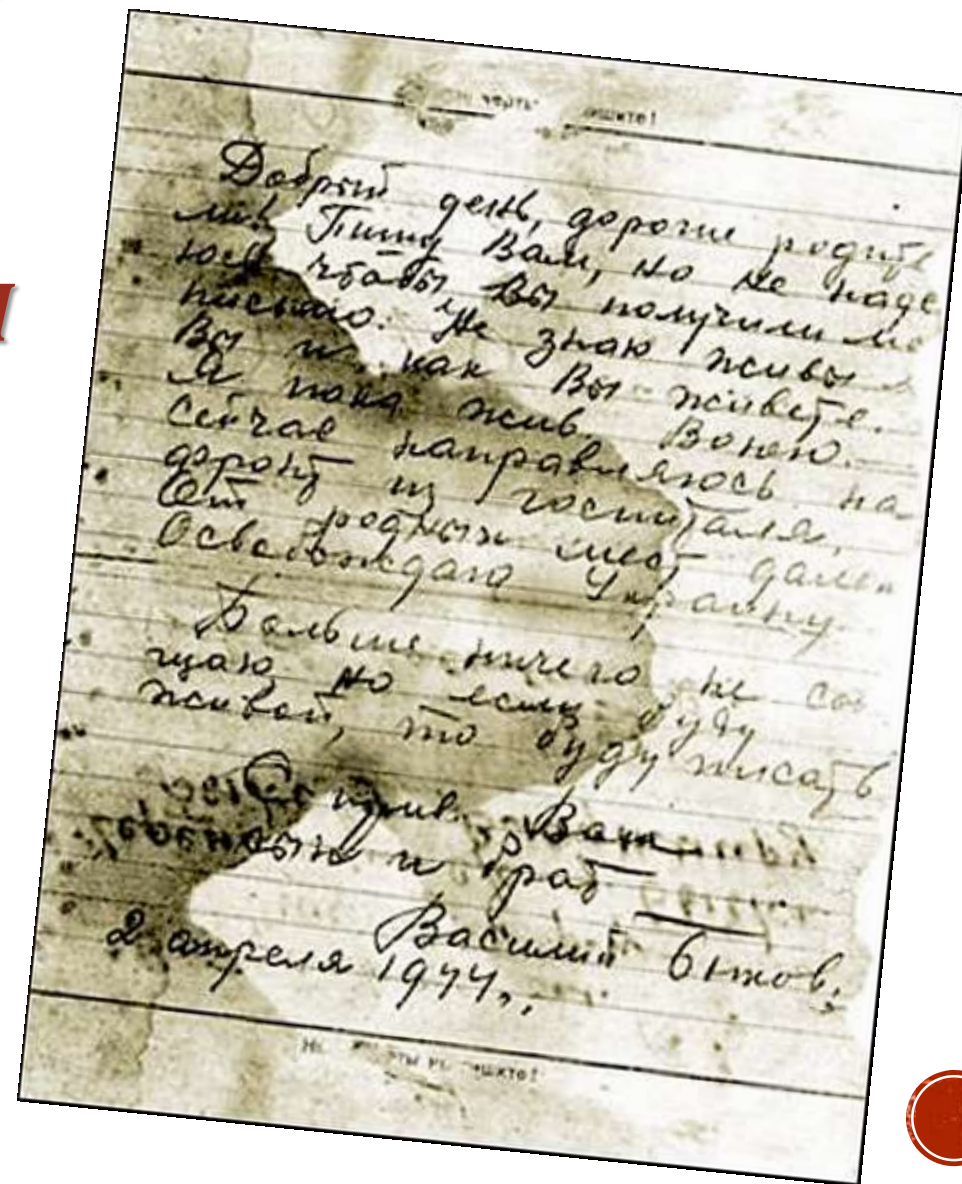 черты
пишите!
Добрый день, дорогие родите
ли. Пишу Вам, но не наде
юсь чтобы Вы получили мо
письмо. Не знаю живы
Вы и как Вы живёте.
Я пока жив. Воюю.
Сейчас направляюсь на
фронт из госпиталя.
От родных мест далек
Освобождаю Украину.
Больше ничего не соо
щаю но если буду
живой, то буду писать
С прив. Ваш
сын и брат
Василий Быков.
2 апреля 1944.
черты не пишите!